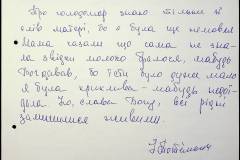 Про голодомор знаю тільки зі
слів матері, бо я була ще немовлям.
Мама казали що сама не зна-
ла звідки молоко бралося, мабудь
Бог давав, бо їсти було дуже мало
я була криклива – мабудь недої-
дала. Но, слава Богу, всі рідні
залишилися живими.